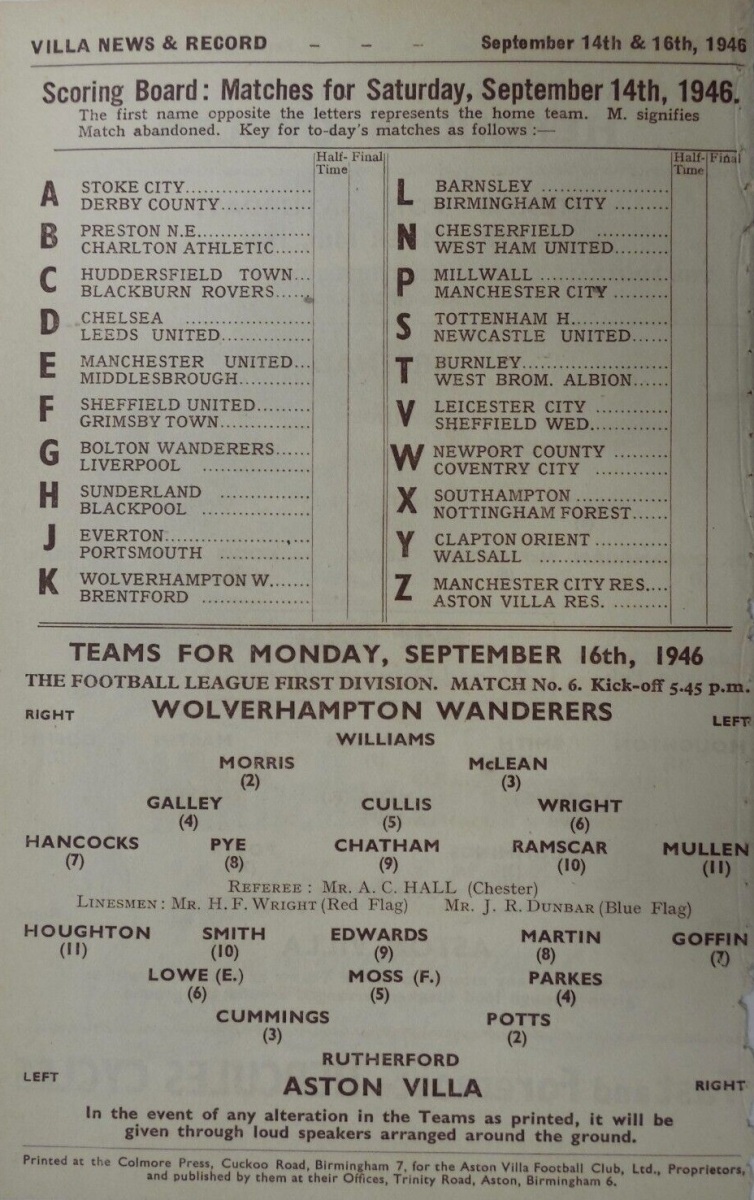 VILLA NEWS & RECORD – – – September 14th & 16th, 1946
Scoring Board: Matches for Saturday, September 14th, 1946.
The first name opposite the letters represents the home team. M. signifies
Match abandoned. Key for to-day's matches as follows :—
Half-Time Final
A STOKE CITY....................
DERBY COUNTY...............
B PRESTON N.E...................
CHARLTON ATHLETIC......
C HUDDERSFIELD TOWN...
BLACKBURN ROVERS......
D CHELSEA ....................
LEEDS UNITED...............
E MANCHESTER UNITED...
MIDDLESBROUGH............
F SHEFFIELD UNITED.........
GRIMSBY TOWN...............
G BOLTON WANDERERS......
LIVERPOOL .................
H SUNDERLAND ...............
BLACKPOOL ..................
J EVERTON.......................
PORTSMOUTH ...............
K WOLVERHAMPTON W.......
BRENTFORD ..................
Half-Time Final
L BARNSLEY ....................
BIRMINGHAM CITY .........
N CHESTERFIELD ............
WEST HAM UNITED.........
P MILLWALL ....................
MANCHESTER CITY .........
S TOTTENHAM H...............
NEWCASTLE UNITED......
T BURNLEY.......................
WEST BROM. ALBION......
V LEICESTER CITY ............
SHEFFIELD WED.............
W NEWPORT COUNTY .........
COVENTRY CITY ............
X SOUTHAMPTON ...............
NOTTINGHAM FOREST......
Y CLAPTON ORIENT ............
WALSALL ....................
Z MANCHESTER CITY RES....
ASTON VILLA RES. .........
TEAMS FOR MONDAY, SEPTEMBER 16th, 1946
THE FOOTBALL LEAGUE FIRST DIVISION. MATCH No. 6. Kick-off 5.45 p.m.
RIGHT WOLVERHAMPTON WANDERERS LEFT
WILLIAMS
MORRIS McLEAN
(2) (3)
GALLEY CULLIS WRIGHT
(4) (5) (6)
HANCOCKS PYE CHATHAM RAMSCAR MULLEN
(7) (8) (9) (10) (11)
REFEREE : MR. A. C. HALL (Chester)
LINESMEN : MR. H. F. WRIGHT (Red Flag) MR. J. R. DUNBAR (Blue Flag)
HOUGHTON SMITH EDWARDS MARTIN GOFFIN
(11) (10) (9) (8) (7)
LOWE (E.) MOSS (F.) PARKES
(6) (5) (4)
CUMMINGS POTTS
(3) (2)
RUTHERFORD
LEFT ASTON VILLA RIGHT
In the event of any alteration in the Teams as printed, it will be
given through loud speakers arranged around the ground.
Printed at the Colmore Press, Cuckoo Road, Birmingham 7, for the Aston Villa Football Club, Ltd., Proprietors,
and published by them at their Offices, Trinity Road, Aston, Birmingham 6.